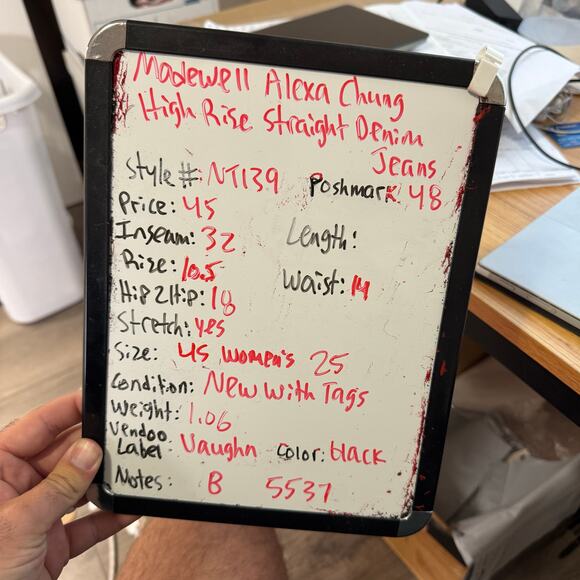 Madewell Alexa Chung
High Rise Straight Denim
Jeans
Style #: NT139 Poshmark 48
Price: 45
Inseam: 32 Length:
Rize: 10.5 Waist: 14
Hip 2 Hip: 18
Stretch: yes
Size: 45 women's 25
Condition: New With Tags
Weight: 1.06
Vendoo
Label: Vaughn Color: black
Notes: B 5537